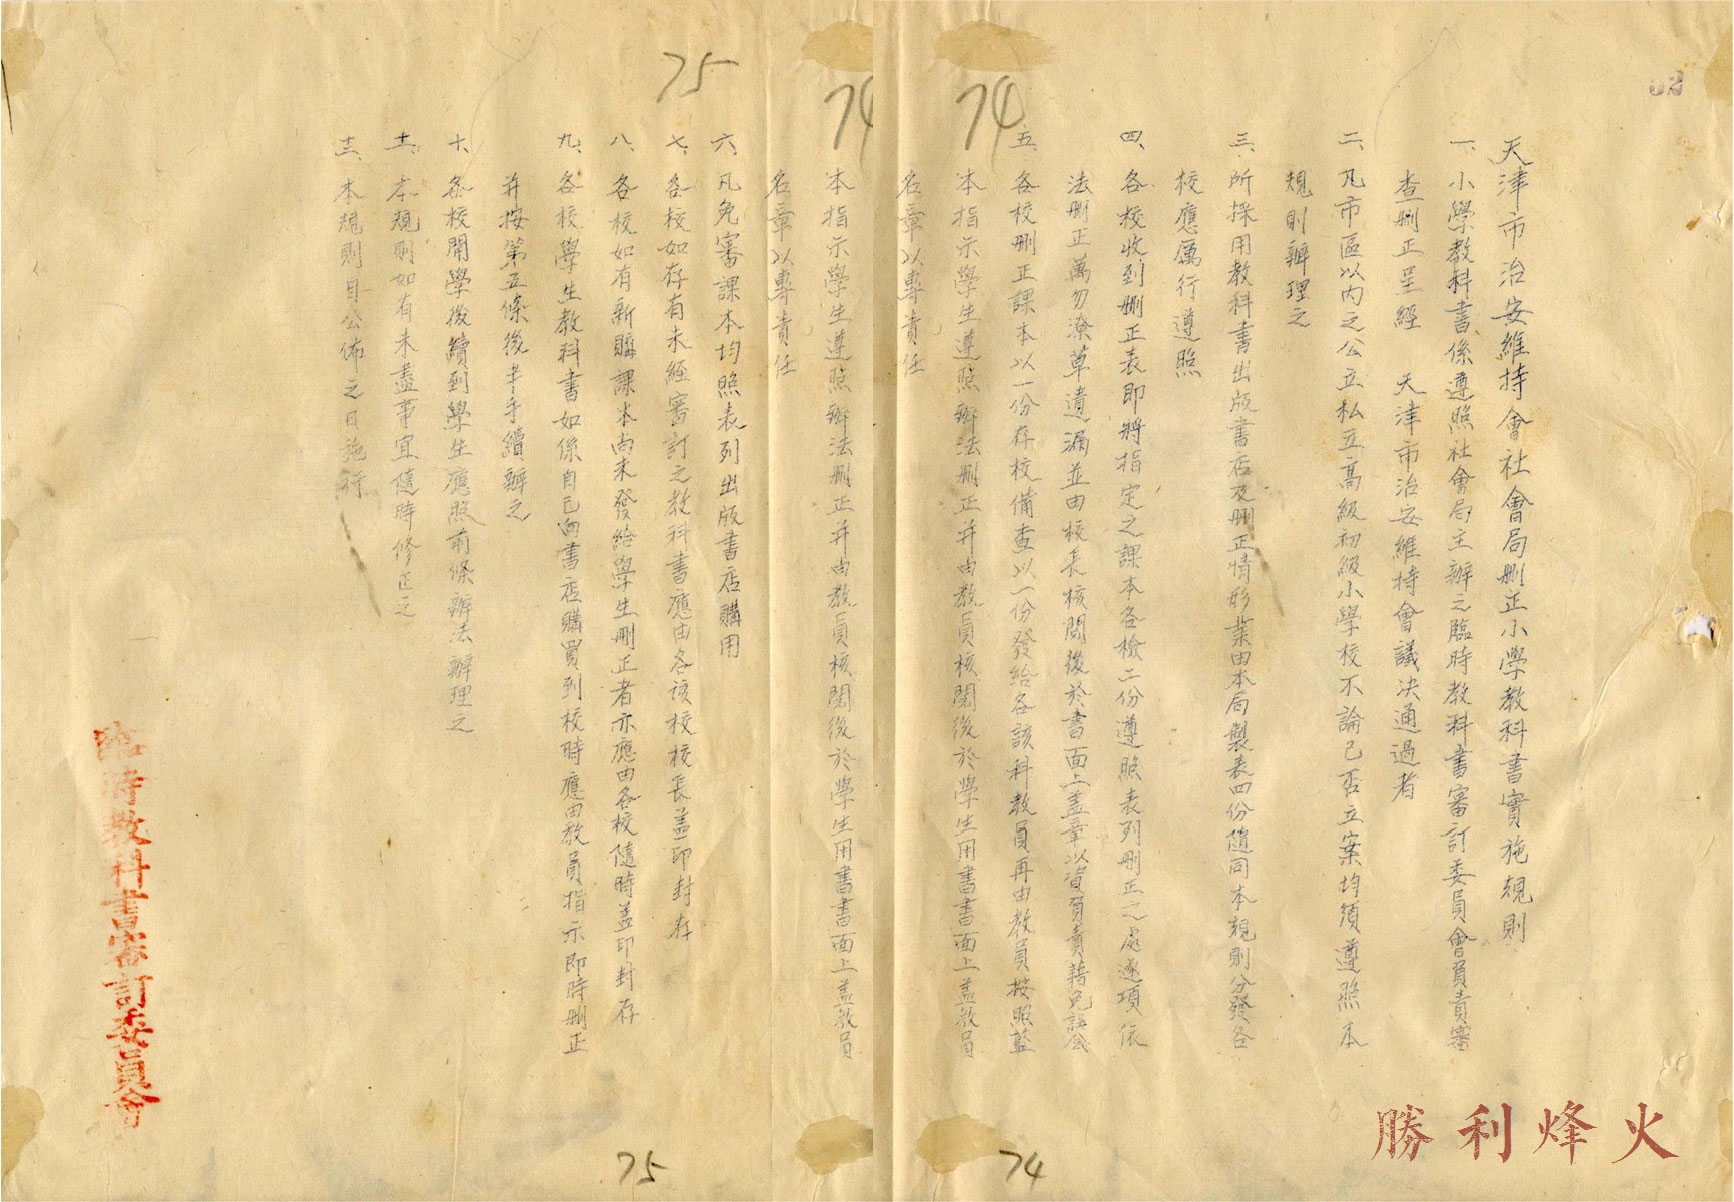 天津市治安維持會社會局刪正小學教科書實施規則
一、小學教科書係遵照社會局主辦之臨時教科書審訂委員會負責審
查刪正呈經 天津市治安維持會議決通過者
二、凡市區以內之公立私立高級初級小學校不論已否立案均須遵照本
規則辦理之
三、所採用教科書出版書店及刪正情形業由本局製表四份隨同本規則分發各
校應厲行遵照
四、各校收到刪正表即將指定之課本各檢二份遵照表列刪正之處逐項依
法刪正萬勿潦草遺漏並由校長核閱後於書面上盖章以資負責藉免誤会
五、各校刪正課本以一份存校備查以一份發給各該科教員再由教員按照藍
本指示學生遵照辦法刪正并由教員核閱後於學生用書書面上盖教員
名章以專責任
本指示學生遵照辦法刪正并由教員核閱後於學生用書書面上盖教員
名章以專責任
六、凡免審課本均照表列出版書店購用
七、各校如存有未經審訂之教科書應由各該校校長盖印封存
八、各校如有新購課本尚未發給學生刪正者亦應由各校隨時盖印封存
九、各校學生教科書如係自己向書店購買到校時應由教員指示即時刪正
并按第五條後半手續辦之
十、各校開學後續到學生應照前條辦法辦理之
十一、本規則如有未盡事宜隨時修正之
十二、本規則自公佈之日施行
臨時教科書審訂委員會
74
74
75
74
75
勝利烽火